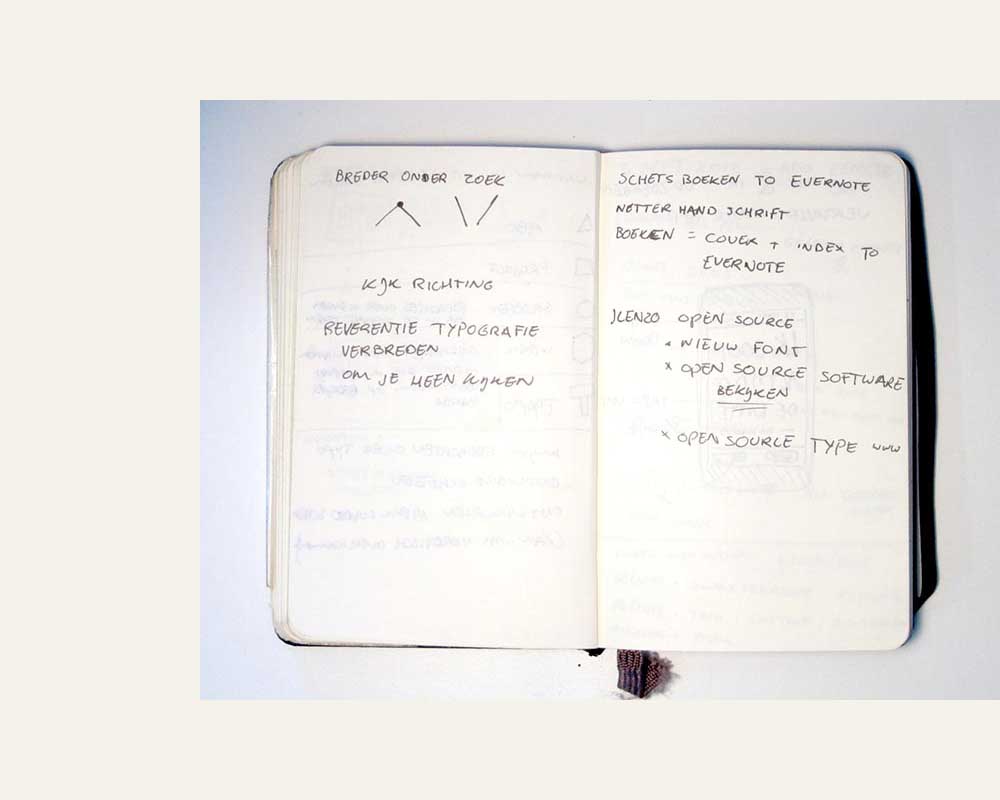 BREDER ONDER ZOEK
KIJK RICHTING
REVERENTIE TYPOGRAFIE
VERBREDEN
OM JE HEEN KIJKEN
SCHETS BOEKEN TO EVERNOTE
NETTER HAND SCHRIFT
BOEKEN = COVER + INDEX TO
EVERNOTE
OPEN SOURCE
• NIEUW FONT
× OPEN SOURCE SOFTWARE
BEKIJKEN
× OPEN SOURCE TYPE www